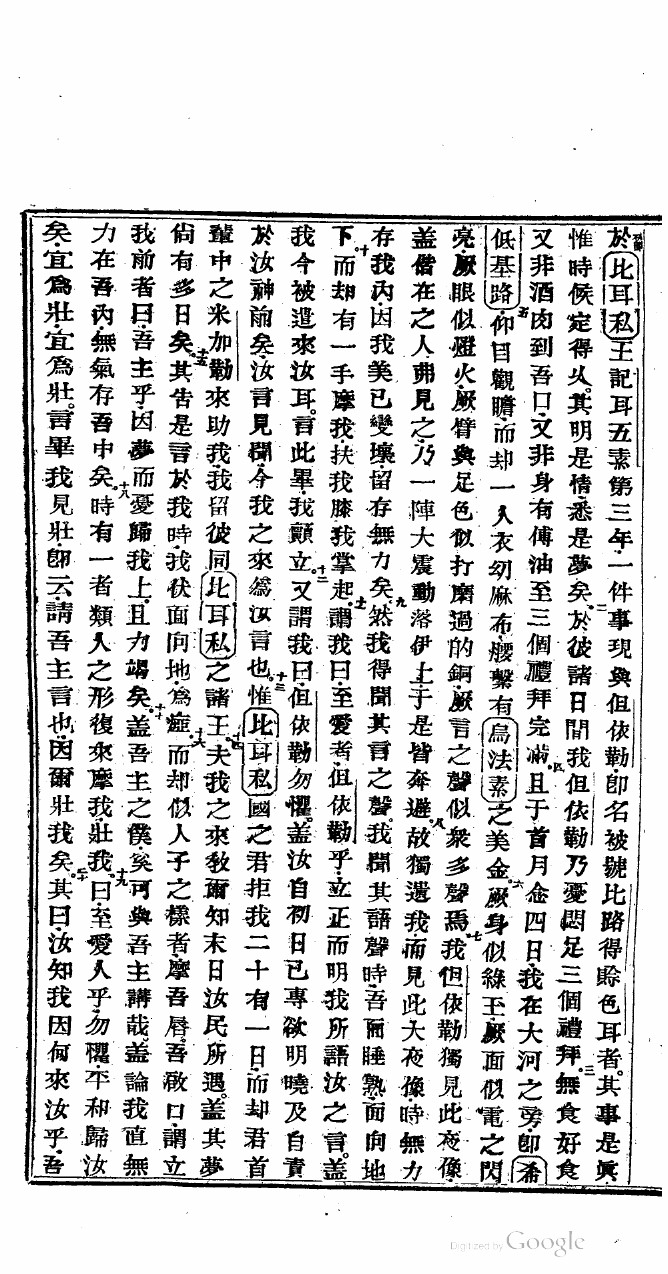 於比耳私王記耳五素第三年一件事現與但依勒卽名被號比路得賒色耳者其事是眞
惟時候定得乆其明是情悉是夢矣二於彼諸日間我但依勒乃憂悶足三個禮拜三無食好食
又非酒肉到吾口又非身有傅油至三個禮拜完滿四且于首月念四日我在大河之旁卽希
低基路五仰目觀瞻而却一人衣幼麻布腰繫有烏法素之美金六厥身似綠玉厥面似電之閃
亮厥眼似燈火厥臂與足色似打磨過的銅厥言之聲似衆多聲焉七我但依勒獨見此夜像
蓋偕在之人弗見之乃一陣大震動落伊上于是皆奔避八故獨遺我而見此大夜像時無力
存我內因我美已變壞留存無力矣九然我得聞其言之聲我聞其語聲時吾面睡熟面向地
下十而却有一手摩我扶我膝我掌起十一謂我曰至愛者但依勒乎立正而明我所語汝之言蓋
我今被遣來汝耳言此畢我顫立十二又謂我曰但依勒勿懼蓋汝自初日已專欲明曉及自責
於汝神前矣汝言見聞今我之來爲汝言也十三惟比耳私國之君拒我二十有一日而却君首
輩中之米加勒來助我我留彼同比耳私之諸王十四夫我之來敎爾知末日汝民所遇蓋其夢
尙有多日矣十五其告是言於我時我伏面向地爲瘂十六而却似人子之樣者摩吾唇吾啟口謂立
我前者曰吾主乎因夢而憂歸我上且力竭矣十七蓋吾主之僕奚可與吾主講哉蓋論我直無
力在吾內無氣存吾中矣十八時有一者類人之形復來摩我壯我十九曰至愛人乎勿懼平和歸汝
矣宜爲壯宜爲壯言畢我見壯卽云請吾主言也因爾壯我矣二十其曰汝知我因何來汝乎吾
Digitized by Google